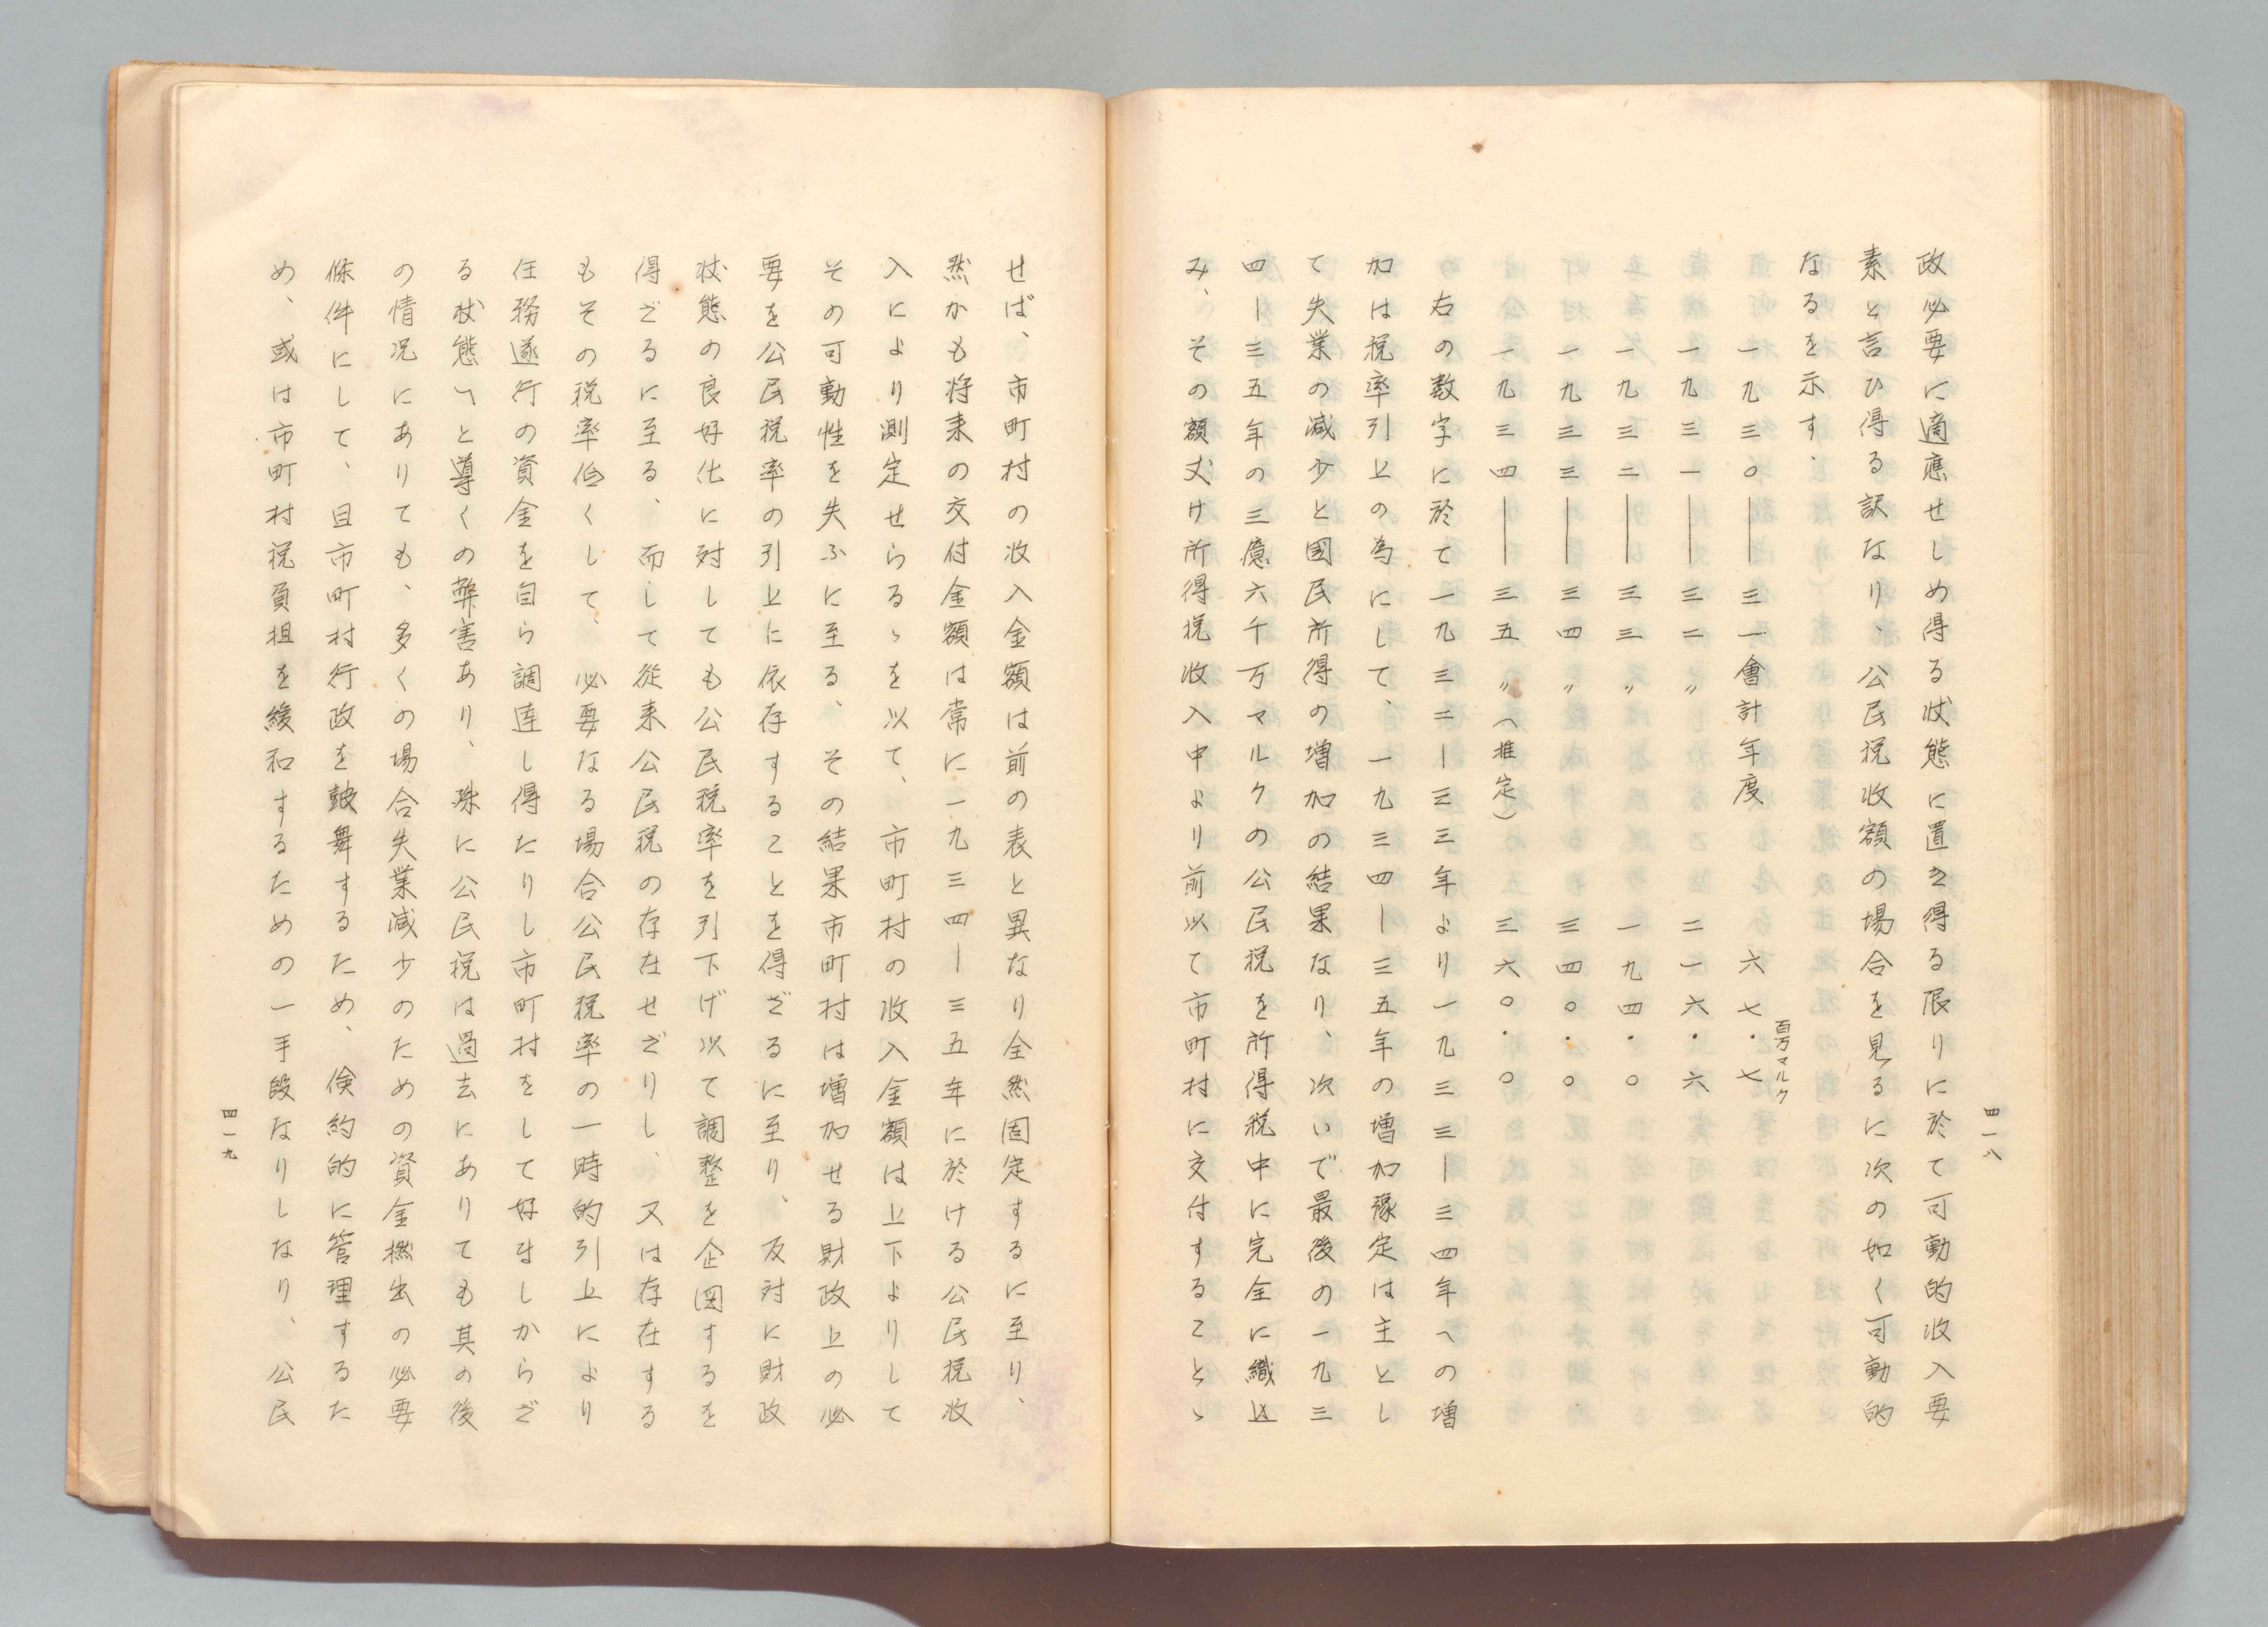 四一八
政必要に適應せしめ得る状態に置き得る限りに於て可動的收入要
素と言ひ得る訳なり、公民税收額の場合を見るに次の如く可動的
なるを示す、
百万マルク
一九三〇——三一會計年度　六七・七
一九三一——三二　〃　二一六・六
一九三二——三三　〃　一九四・〇
一九三三——三四　〃　三四〇・〇
一九三四——三五　〃（推定）　三六〇・〇
右の数字に於て一九三二ー三三年より一九三三ー三四年への増
加は税率引上の為にして、一九三四ー三五年の増加豫定は主とし
て失業の減少と國民所得の増加の結果なり、次いで最後の一九三
四ー三五年の三億六千万マルクの公民税を所得税中に完全に織込
み、その額丈け所得税收入中より前以て市町村に交付することゝ
せば、市町村の收入金額は前の表と異なり全然固定するに至り、
然かも将来の交付金額は常に一九三四ー三五年に於ける公民税收
入により測定せらるゝを以て、市町村の收入金額は上下よりして
その可動性を失ふに至る、その結果市町村は増加せる財政上の必
要を公民税率の引上に依存することを得ざるに至り、反対に財政
状態の良好化に対しても公民税率を引下げ以て調整を企図するを
得ざるに至る、而して従来公民税の存在せざりし、又は存在する
もその税率低くして、必要なる場合公民税率の一時的引上により
任務遂行の資金を自ら調達し得たりし市町村をして好ましからざ
る状態へと導くの弊害あり、殊に公民税は過去にありても其の後
の情况にありても、多くの場合失業減少のための資金撚出の必要
條件にして、且市町村行政を鼓舞するため、倹約的に管理するた
め、或は市町村税負担を緩和するための一手段なりしなり、公民
四一九